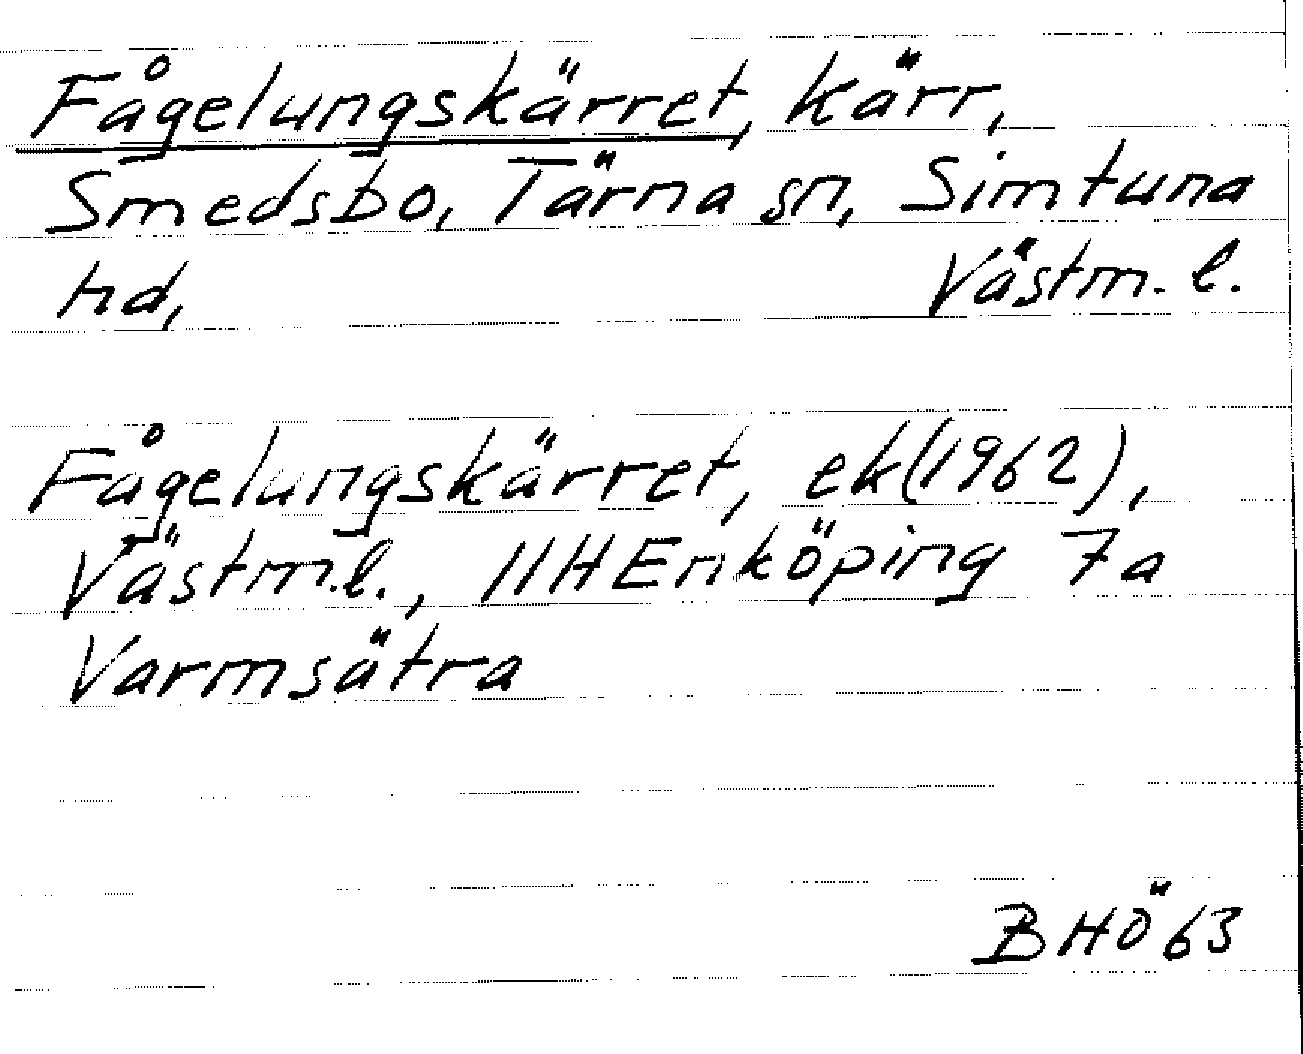 Fågelungskärret, kärr,
Smedsbo, Tärna sn, Simtuna
hd, Västm. l.
Fågelungskärret, ek(1962),
Västm.l., 11H Enköping 7a
Varmsätra
BHÖ 63